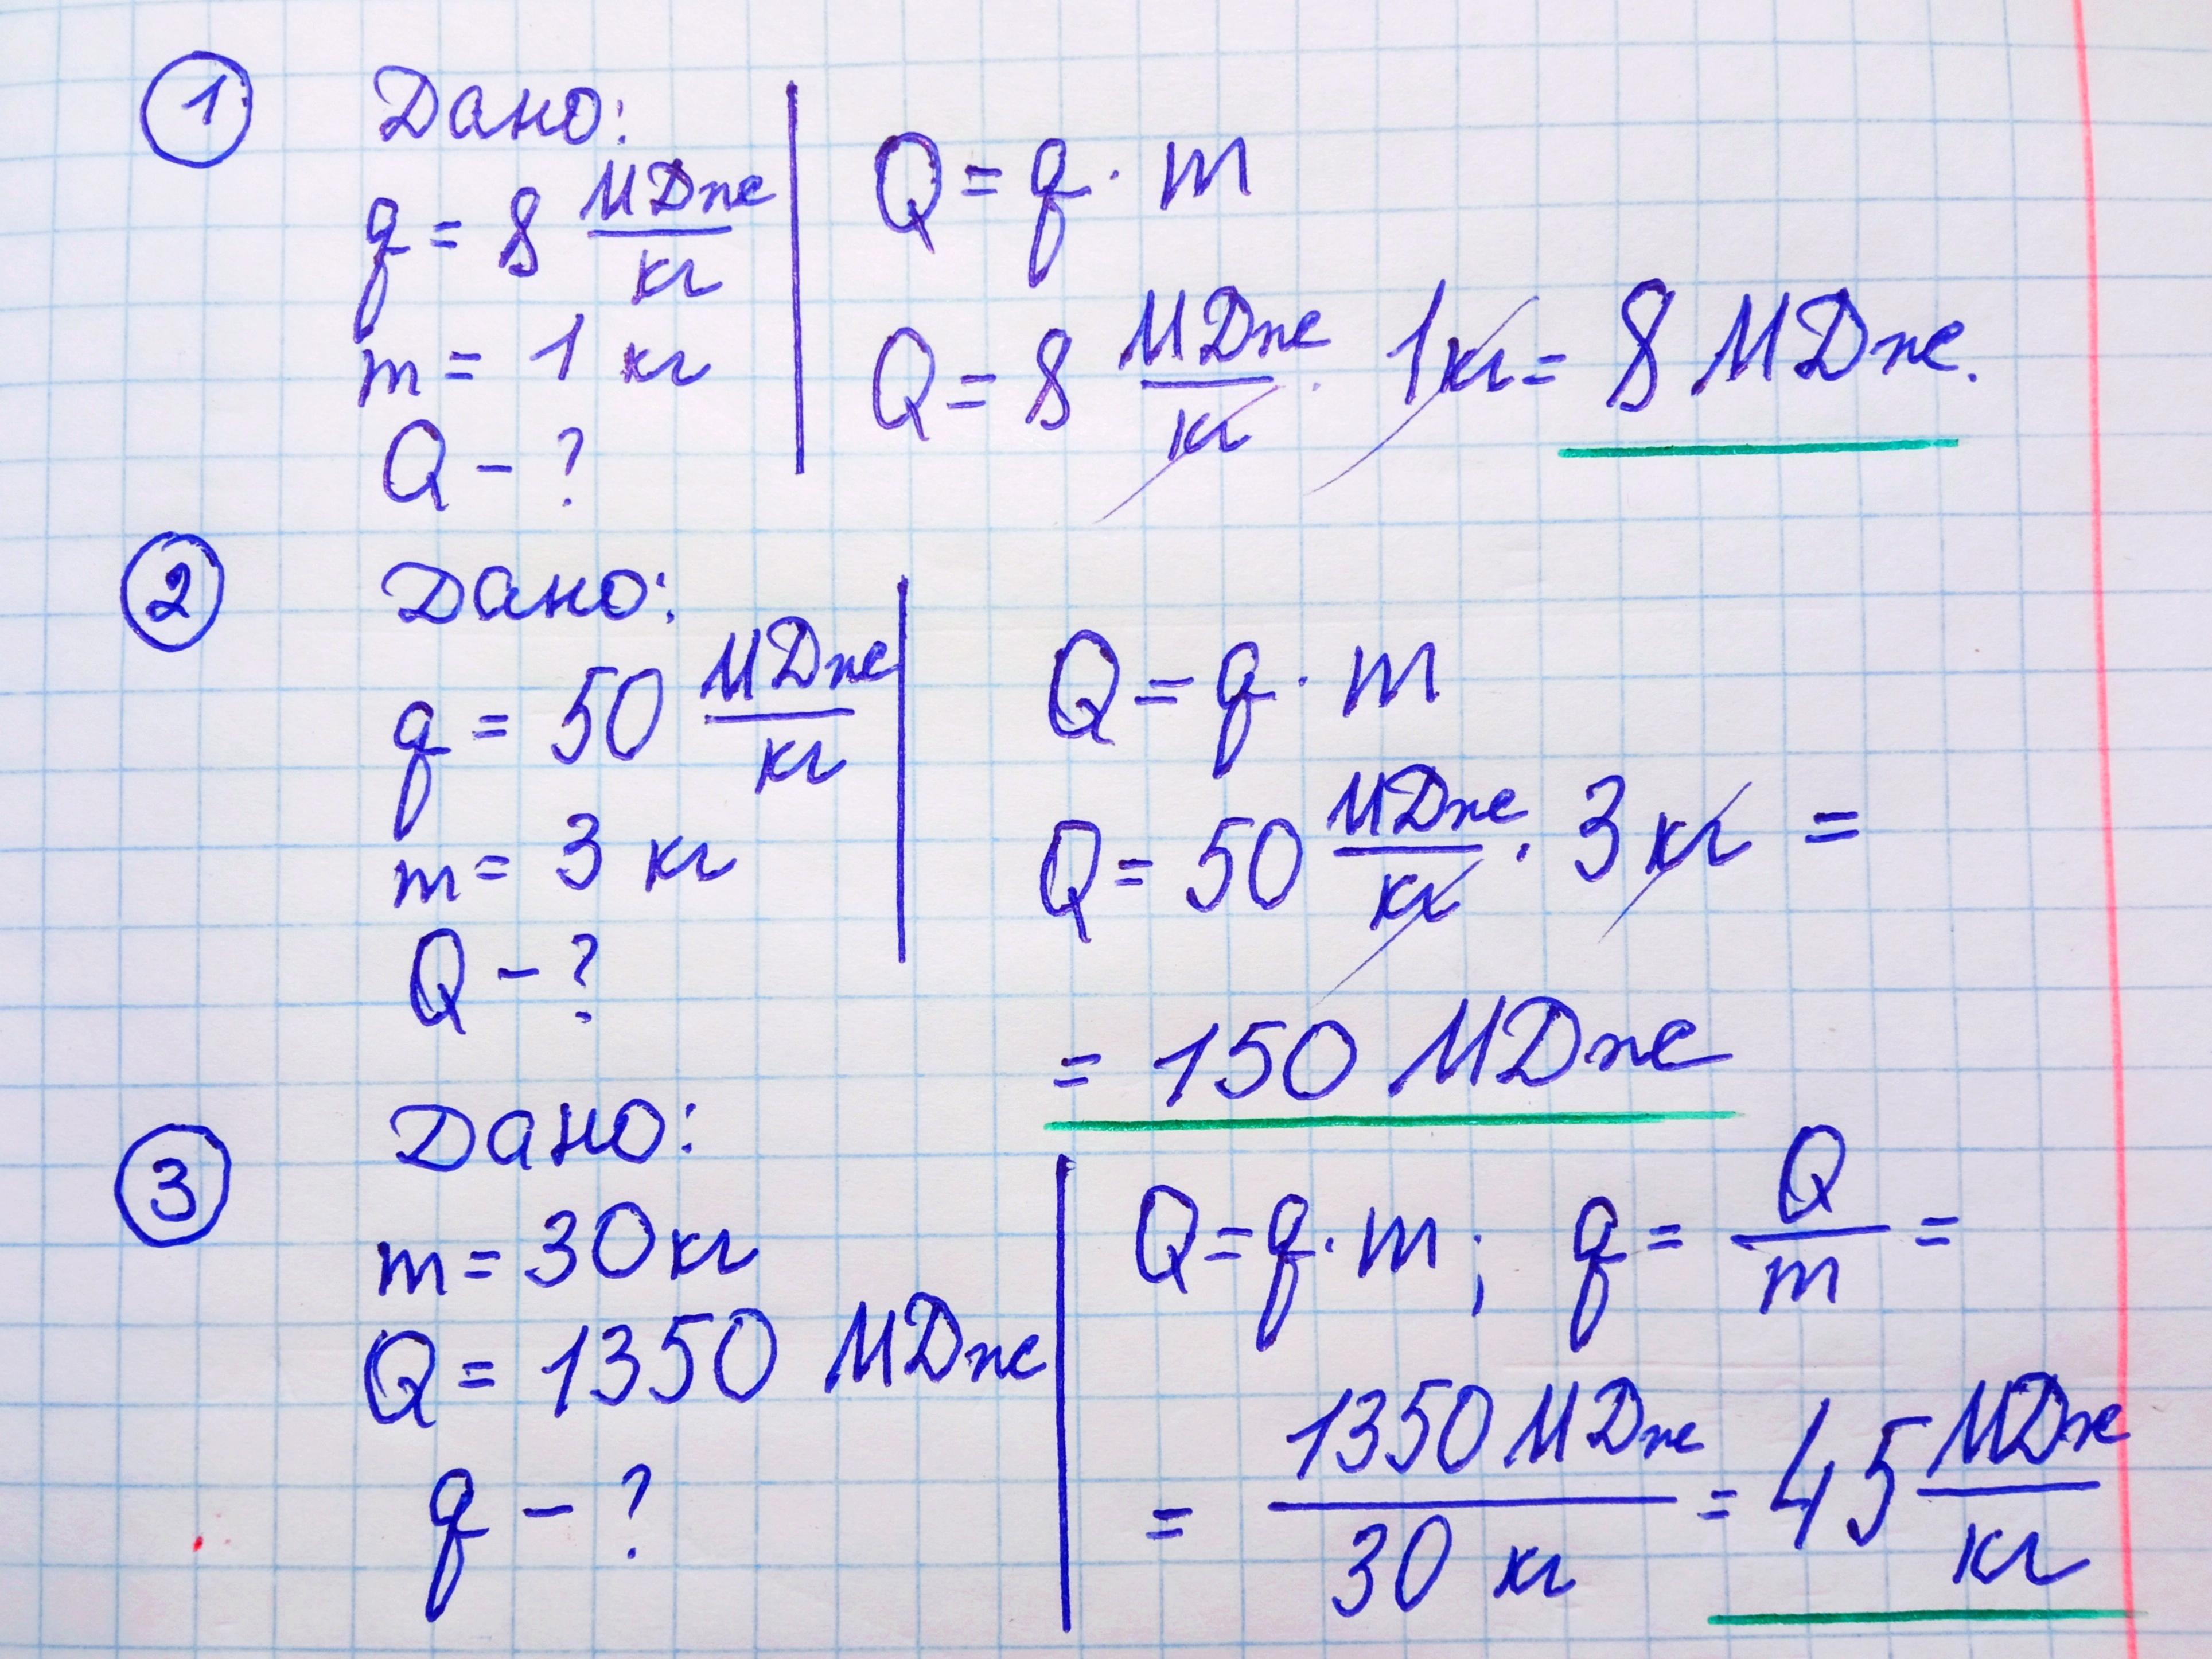 1
Дано:
q = 8 МДж/кг
m = 1 кг
Q - ?
Q = q · m
Q = 8 МДж/кг · 1 кг = 8 МДж.
2
Дано:
q = 50 МДж/кг
m = 3 кг
Q - ?
Q = q · m
Q = 50 МДж/кг · 3 кг =
= 150 МДж
3
Дано:
m = 30 кг
Q = 1350 МДж
q - ?
Q = q · m; q = Q/m =
= 1350 МДж/30 кг = 45 МДж/кг